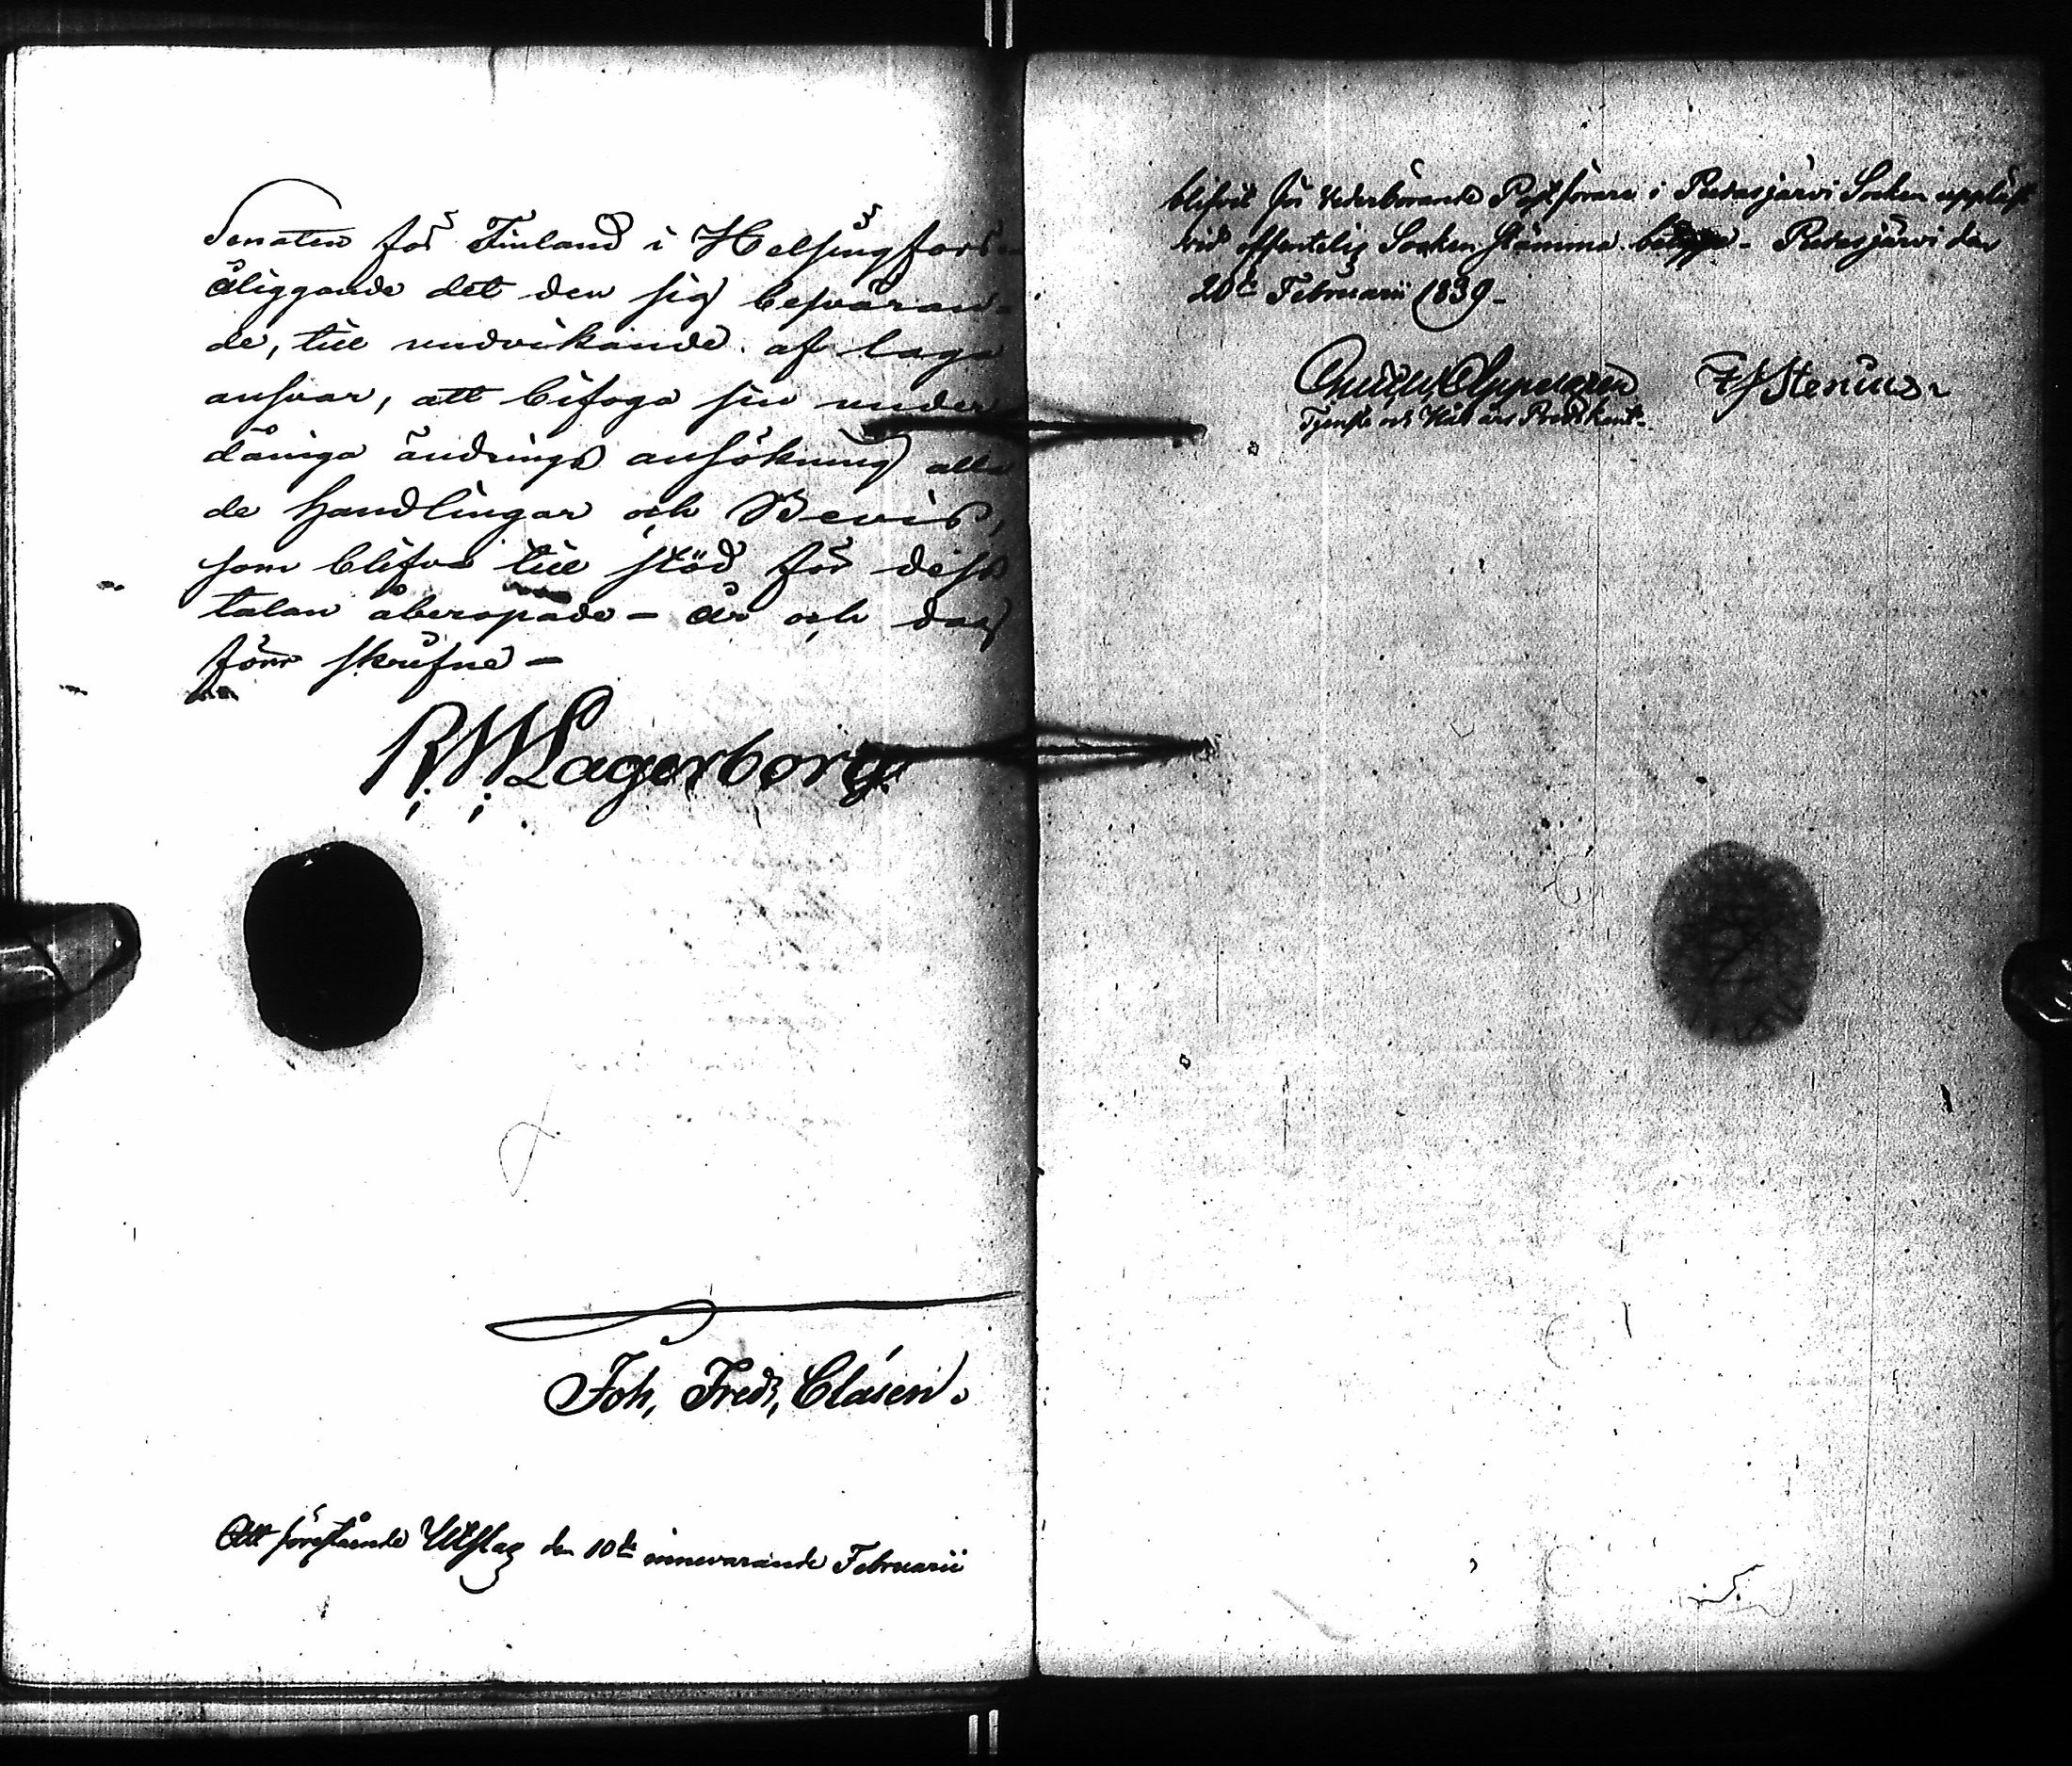 Senaten för Finland i Helsingfors
åliggande det den sig besväran-
de, till undvikande af laga
ansvar, att bifoga sin under
dåniga ändrings ansökning alla
de handlingar och Bevis,
som blifva till stöd för dess
talan åberopade - År och dag
förr skrifne -
R. W. Lagerborg.
Joh, Fredr, Clásen.
Att förestående Utslag den 10de innevarande Februarii
blifvit för Vederbörande Postförare i Pudasjärvi Socken uppläst
vid offentelig Socken Stämma - Pudasjärvi den
20de Februarii 1839 -
Stenius